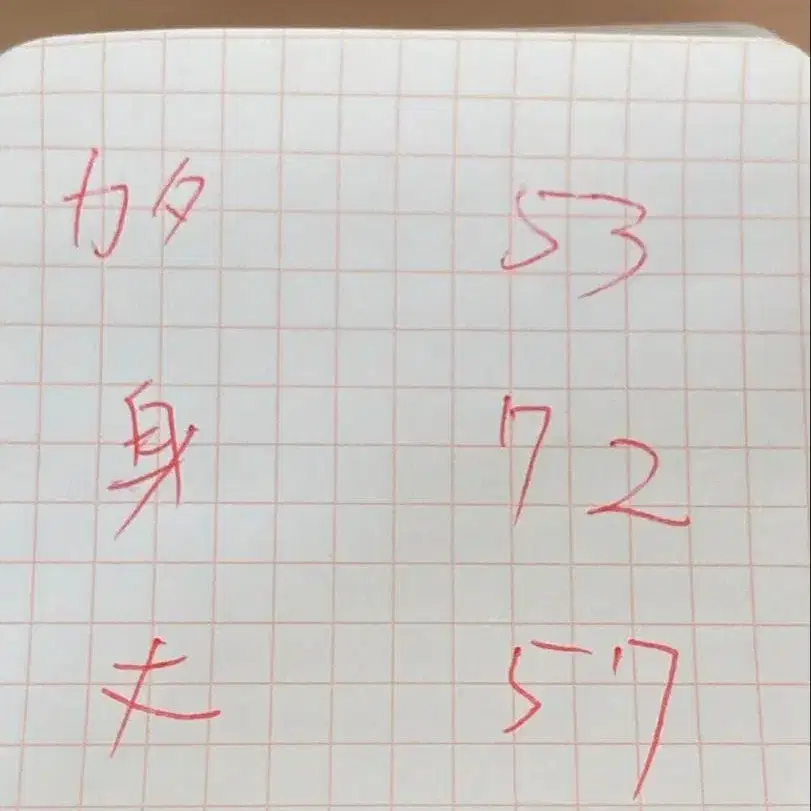 カタ 53
身 72
丈 57